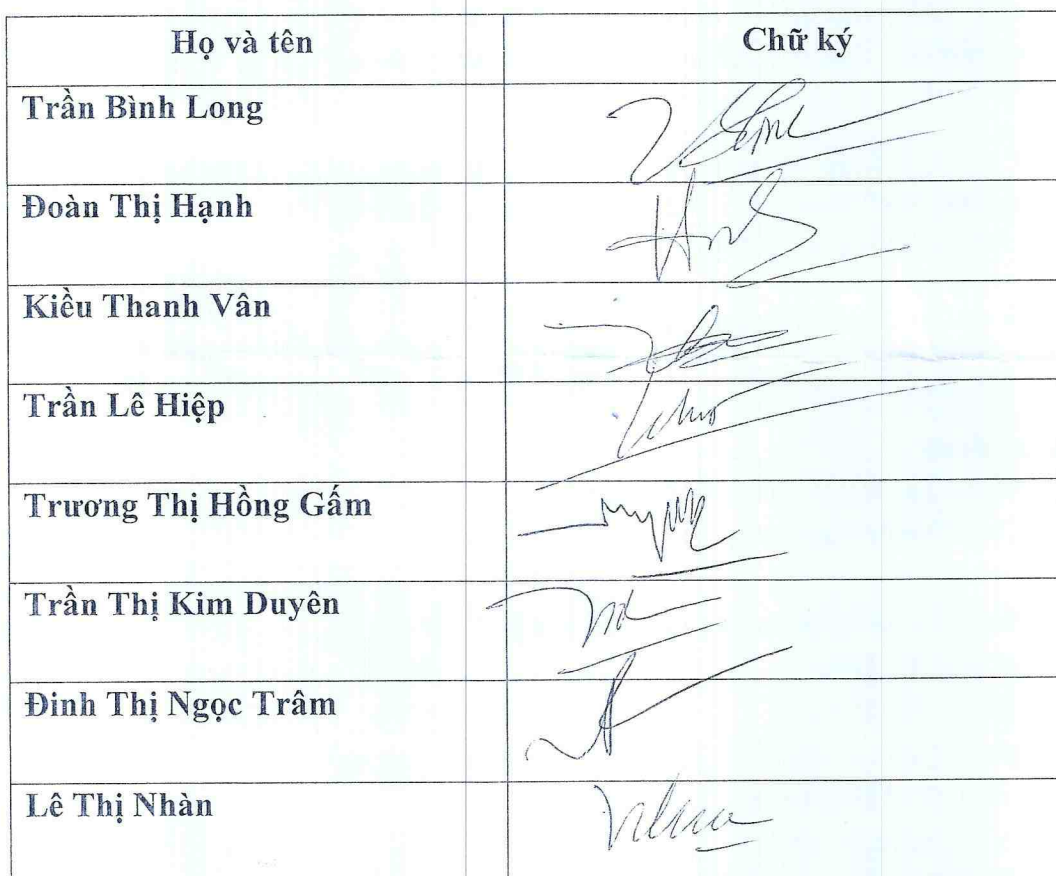 Họ và tên
Chữ ký
Trần Bình Long
Đoàn Thị Hạnh
Kiều Thanh Vân
Trần Lê Hiệp
Trương Thị Hồng Gấm
Trần Thị Kim Duyên
Đinh Thị Ngọc Trâm
Lê Thị Nhàn